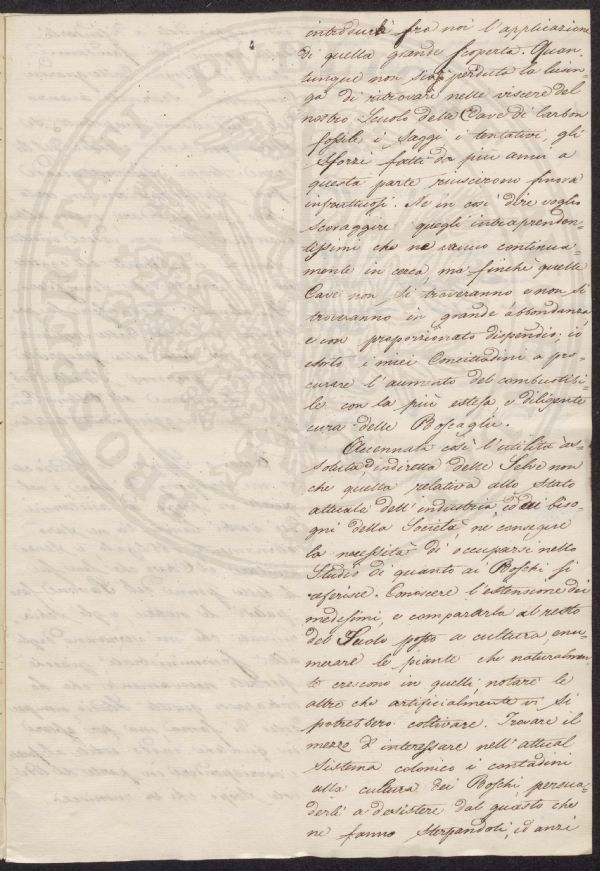 introdurrà fra noi l'applicazione
di quella grande scoperta. Quan,
tunque non siasi perduta la lusin,
ga di ritrovare nelle viscere del
nostro Suolo delle Cave di Carbon
fossile i saggi i tentativi gli
sforzi fatti da più anni a
questa parte riuscirono finora
infruttuosi. Ne in così dire voglio
scoraggire quegli intraprenden=
tissimi che ne vanno continua=
mente in cerca, ma finchè quelle
Cave non si troveranno e non si
troveranno in grande abbondanza
e con proporzionato dispendio; io
esorto i miei Concittadini a pro=
curare l'aumento del combustibi=
le con la più estesa e diligente
cura delle Boscaglie.
Accennata così l'utilità as=
soluta, indiretta delle Selve non
che quella relativa allo stato
attuale dell'industria, ed ai biso=
gni della Società ne consegue
la necessità di occuparsi nello
Studio di quanto ai Boschi si
riferisce. Conoscere l'estensione dei
medesimi, e compararla al resto
del Suolo posto a cultura, enu=
merare le piante che naturalmen=
te crescono in quelli; notare le
altre che artificialmente vi si
potrebbero coltivare. Trovare il
mezzo d'interessare nell'attual
sistema colonico i contadini
alla cultura dei Boschi persua=
derli a desistere dal guasto che
ne fanno sterpandoli, ed anzi